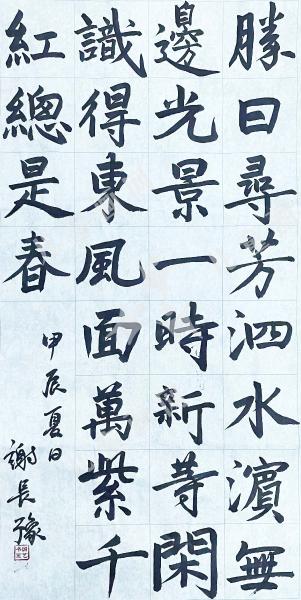 勝日尋芳泗水濱無
邊光景一時新等閑
識得東風面萬紫千
紅總是春
甲辰夏日
謝長豫